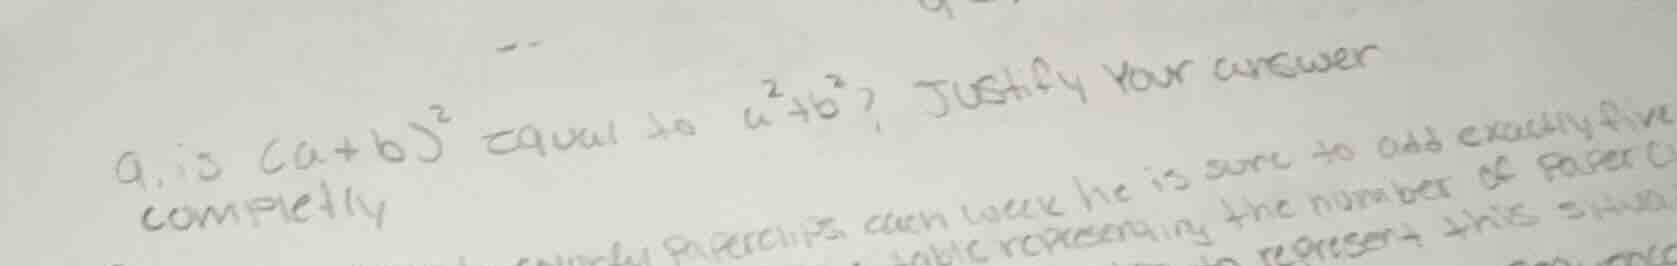 a. is (a+b)² equal to a²+b²? Justify Your answer
completly
paperclips each week he is sure to add exactly five
table representing the number of paper
represent this